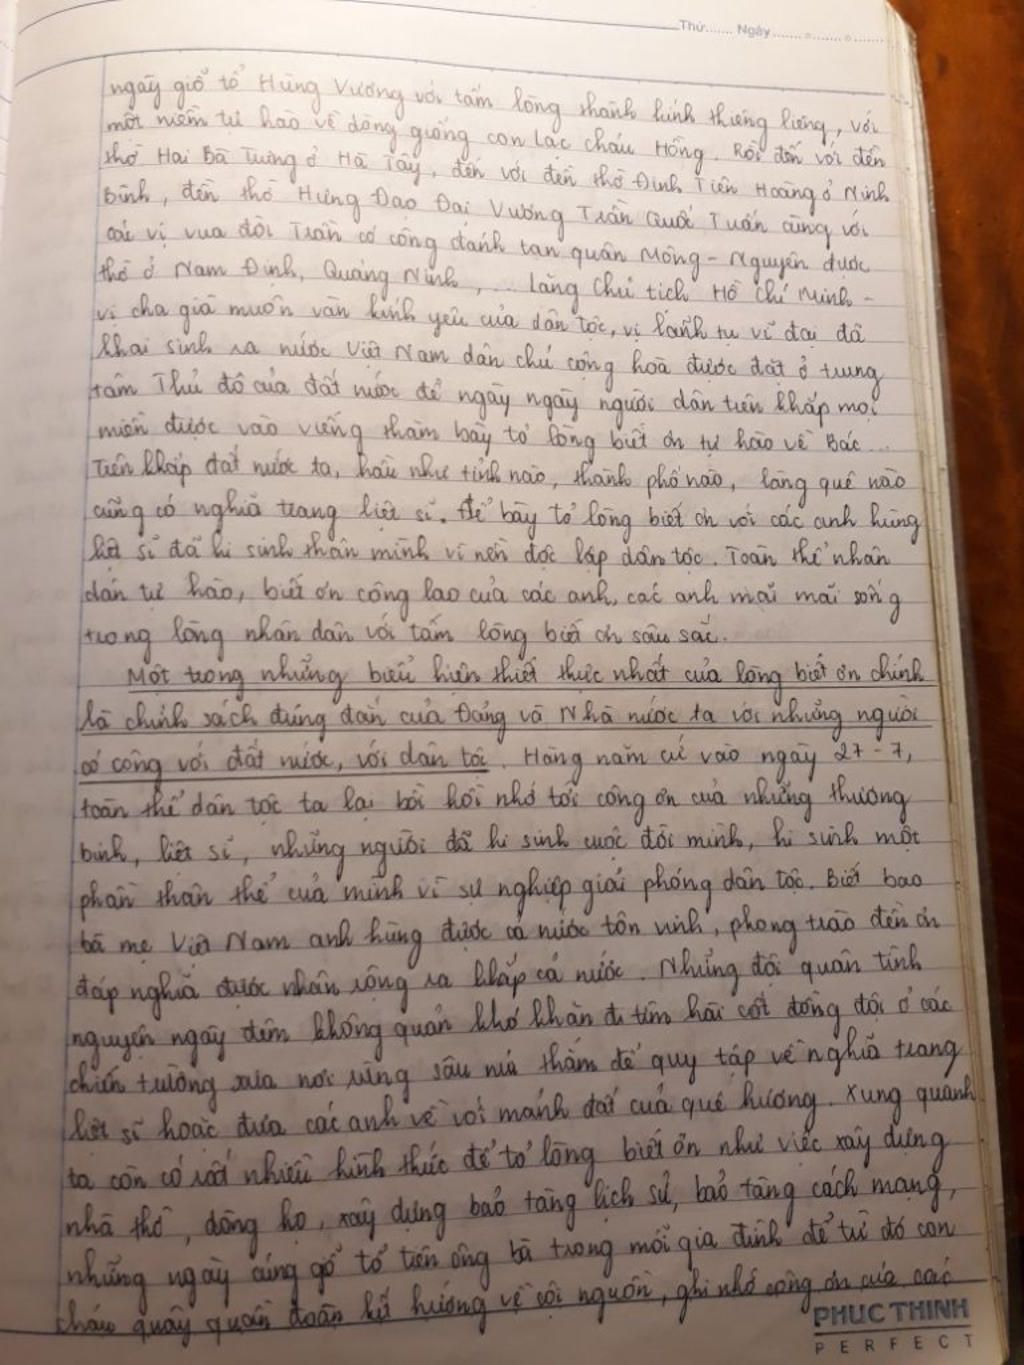 Thứ....... Ngày.......o.......o.......
ngày giổ tổ Hùng Vương với tấm lòng thành kính thiêng liêng, với
một niềm tự hào về dòng giống con Lạc cháu Hồng. Rồi đến với đền
thờ Hai Bà Trưng ở Hà Tây, đến với đền thờ Đinh Tiên Hoàng ở Ninh
Bình, đền thờ Hưng Đạo Đại Vương Trần Quốc Tuấn cùng với
các vị vua đời Trần có công đánh tan quân Mông - Nguyên được
thờ ở Nam Định, Quảng Ninh, ... Lăng Chủ tịch Hồ Chí Minh -
vị cha già muôn vàn kính yêu của dân tộc, vị lãnh tụ vĩ đại đã
khai sinh ra nước Việt Nam dân chủ cộng hoà được đặt ở trung
tâm Thủ đô của đất nước để ngày ngày người dân trên khắp mọi
miền được vào viếng thăm bày tỏ lòng biết ơn tự hào về Bác...
Trên khắp đất nước ta, hầu như tỉnh nào, thành phố nào, làng quê nào
cũng có nghĩa trang liệt sĩ. Để bày tỏ lòng biết ơn với các anh hùng
liệt sĩ đã hi sinh thân mình vì nền độc lập dân tộc. Toàn thể nhân
dân tự hào, biết ơn công lao của các anh, các anh mãi mãi sống
trong lòng nhân dân với tấm lòng biết ơn sâu sắc.
Một trong những biểu hiện thiết thực nhất của lòng biết ơn chính
là chính sách đúng đắn của Đảng và Nhà nước ta với những người
có công với đất nước, với dân tộc. Hàng năm cứ vào ngày 27-7,
toàn thể dân tộc ta lại bồi hồi nhớ tới công ơn của những thương
binh, liệt sĩ, những người đã hi sinh cuộc đời mình, hi sinh một
phần thân thể của mình vì sự nghiệp giải phóng dân tộc. Biết bao
bà mẹ Việt Nam anh hùng được cả nước tôn vinh, phong trào đền ơn
đáp nghĩa được nhân rộng ra khắp cả nước. Những đội quân tình
nguyện ngày đêm không quản khó khăn đi tìm hài cốt đồng đội ở các
chiến trường xưa nơi rừng sâu núi thẳm để quy tập về nghĩa trang
liệt sĩ hoặc đưa các anh về với mảnh đất của quê hương. Xung quanh
ta còn có rất nhiều hình thức để tỏ lòng biết ơn như việc xây dựng
nhà thờ, dòng họ, xây dựng bảo tàng lịch sử, bảo tàng cách mạng,
những ngày cúng giổ tổ tiên ông bà trong mỗi gia đình để từ đó con
cháu quây quần đoàn kết hướng về cội nguồn, ghi nhớ công ơn của các
PHUC THINH
PERFECT